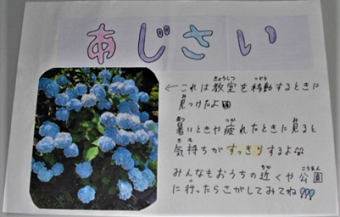 あじさい
←これは教室を移動するときに
見つけたよ
暑いときや疲れたときに見ると
気持ちがすっきりするよな
みんなもおうちの近くや公園
に行ったらさがしてみてね